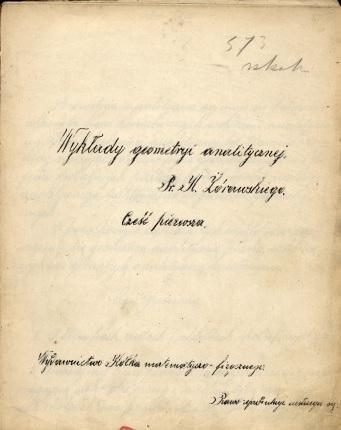 573
Wykłady geometryi analitycznej.
Pr. K. Żórawskiego.
Cześć pierwsza.
Wydawnictwo Kółka matematyczno-fizycznego.
Prawo reprodukcyi zastrzega się.